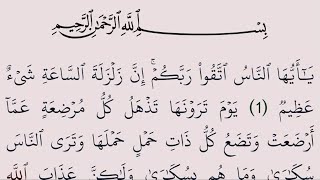 بِسْمِ ٱللَّهِ ٱلرَّحْمَٰنِ ٱلرَّحِيمِ
يَـٰٓأَيُّهَا ٱلنَّاسُ ٱتَّقُوا۟ رَبَّكُمْ ۚ إِنَّ زَلْزَلَةَ ٱلسَّاعَةِ شَىْءٌ
عَظِيمٌ (1) يَوْمَ تَرَوْنَهَا تَذْهَلُ كُلُّ مُرْضِعَةٍ عَمَّآ
أَرْضَعَتْ وَتَضَعُ كُلُّ ذَاتِ حَمْلٍ حَمْلَهَا وَتَرَى ٱلنَّاسَ
سُكَـٰرَىٰ وَمَا هُم بِسُكَـٰرَىٰ وَلَـٰكِنَّ عَذَابَ ٱللَّهِ